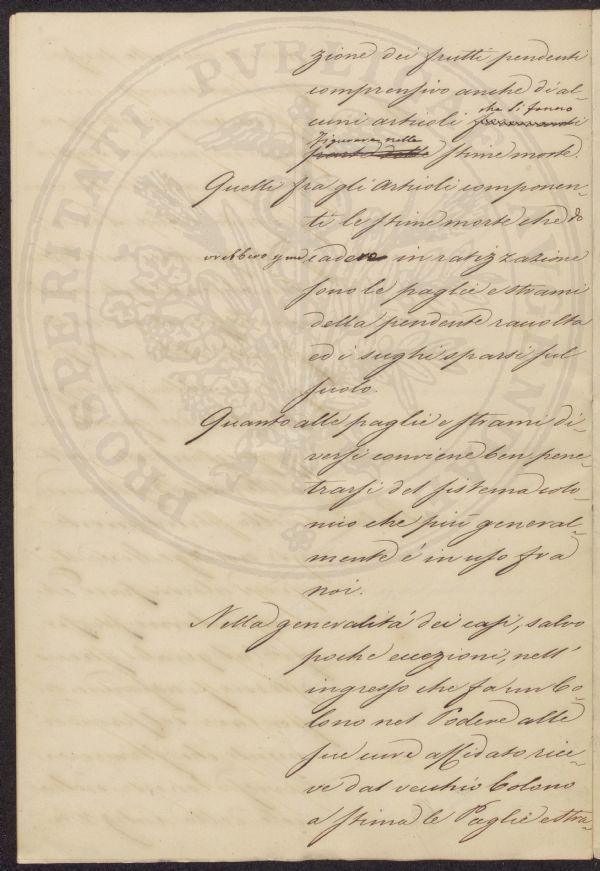 zione dei frutti pendenti
comprensivo anche di al-
cuni articoli che si fanno
figurare nelle stime morte.
Quelli fra gli articoli componen-
ti le stime morte che do
vrebbero cadere in ratizzazione
sono le paglie e strami
della pendente raccolta
ed i sughi sparsi sul
suolo.
Quanto alle paglie e strami di-
versi conviene ben pene-
trarsi del sistema colo-
nico che più general-
mente é in uso fra
noi.
Nella generalitá dei casi, salvo
poche eccezioni, nell'
ingresso che fa un Co-
lono nel Podere alle
sue cure affidato rice-
ve dal vecchio Colono
a stima le Paglie e stra-
PROSPERITATI PVBLICAE